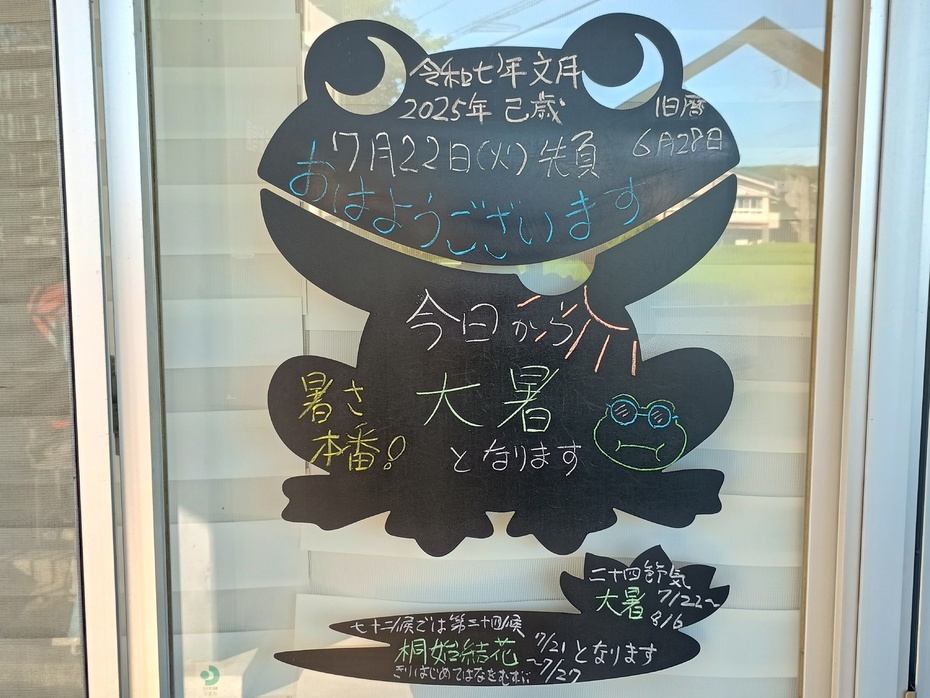 令和七年文月
2025年 己歳
旧暦
6月28日
7月22日(火)先負
おはようございます
今日から
大暑
となります
暑さ
本番!
二十四節気
大暑 7/22~
8/6
七十二候では第三十四候
桐始結花 7/21~7/27となります
きりはじめてはなをむすぶ